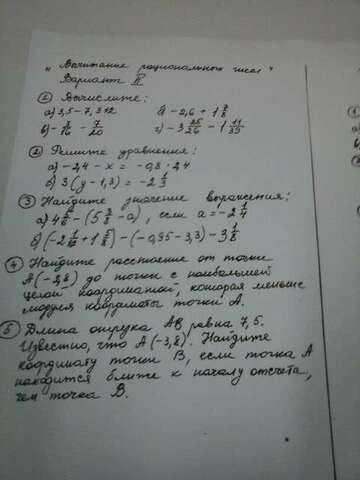 "Вычитание рациональных чисел"
Вариант II
① Вычислите:
а) 3,5 - 7,3 б) -2,6 + 1
в) - - 7/20 г) -3 25/26 - 1 11/39
② Решите уравнения:
а) -2,4 - x = -0,8 · 2,4
б) 3(y - 1,3) = -2 1/3
③ Найдите значение выражения:
а) 4 - (5 - a), если a = -2 1/4
б) (-2 + 1 5/8) - (-0,95 - 3,3) - 3 1/8
④ Найдите расстояние от точки
A(-2,8) до точки с наибольшей
целой координатой, которая меньше
модуля координаты точки A.
⑤ Длина отрезка AB равна 7,5.
Известно, что A(-3,8). Найдите
координату точки B, если точка A
находится ближе к началу отсчета,
чем точка B.